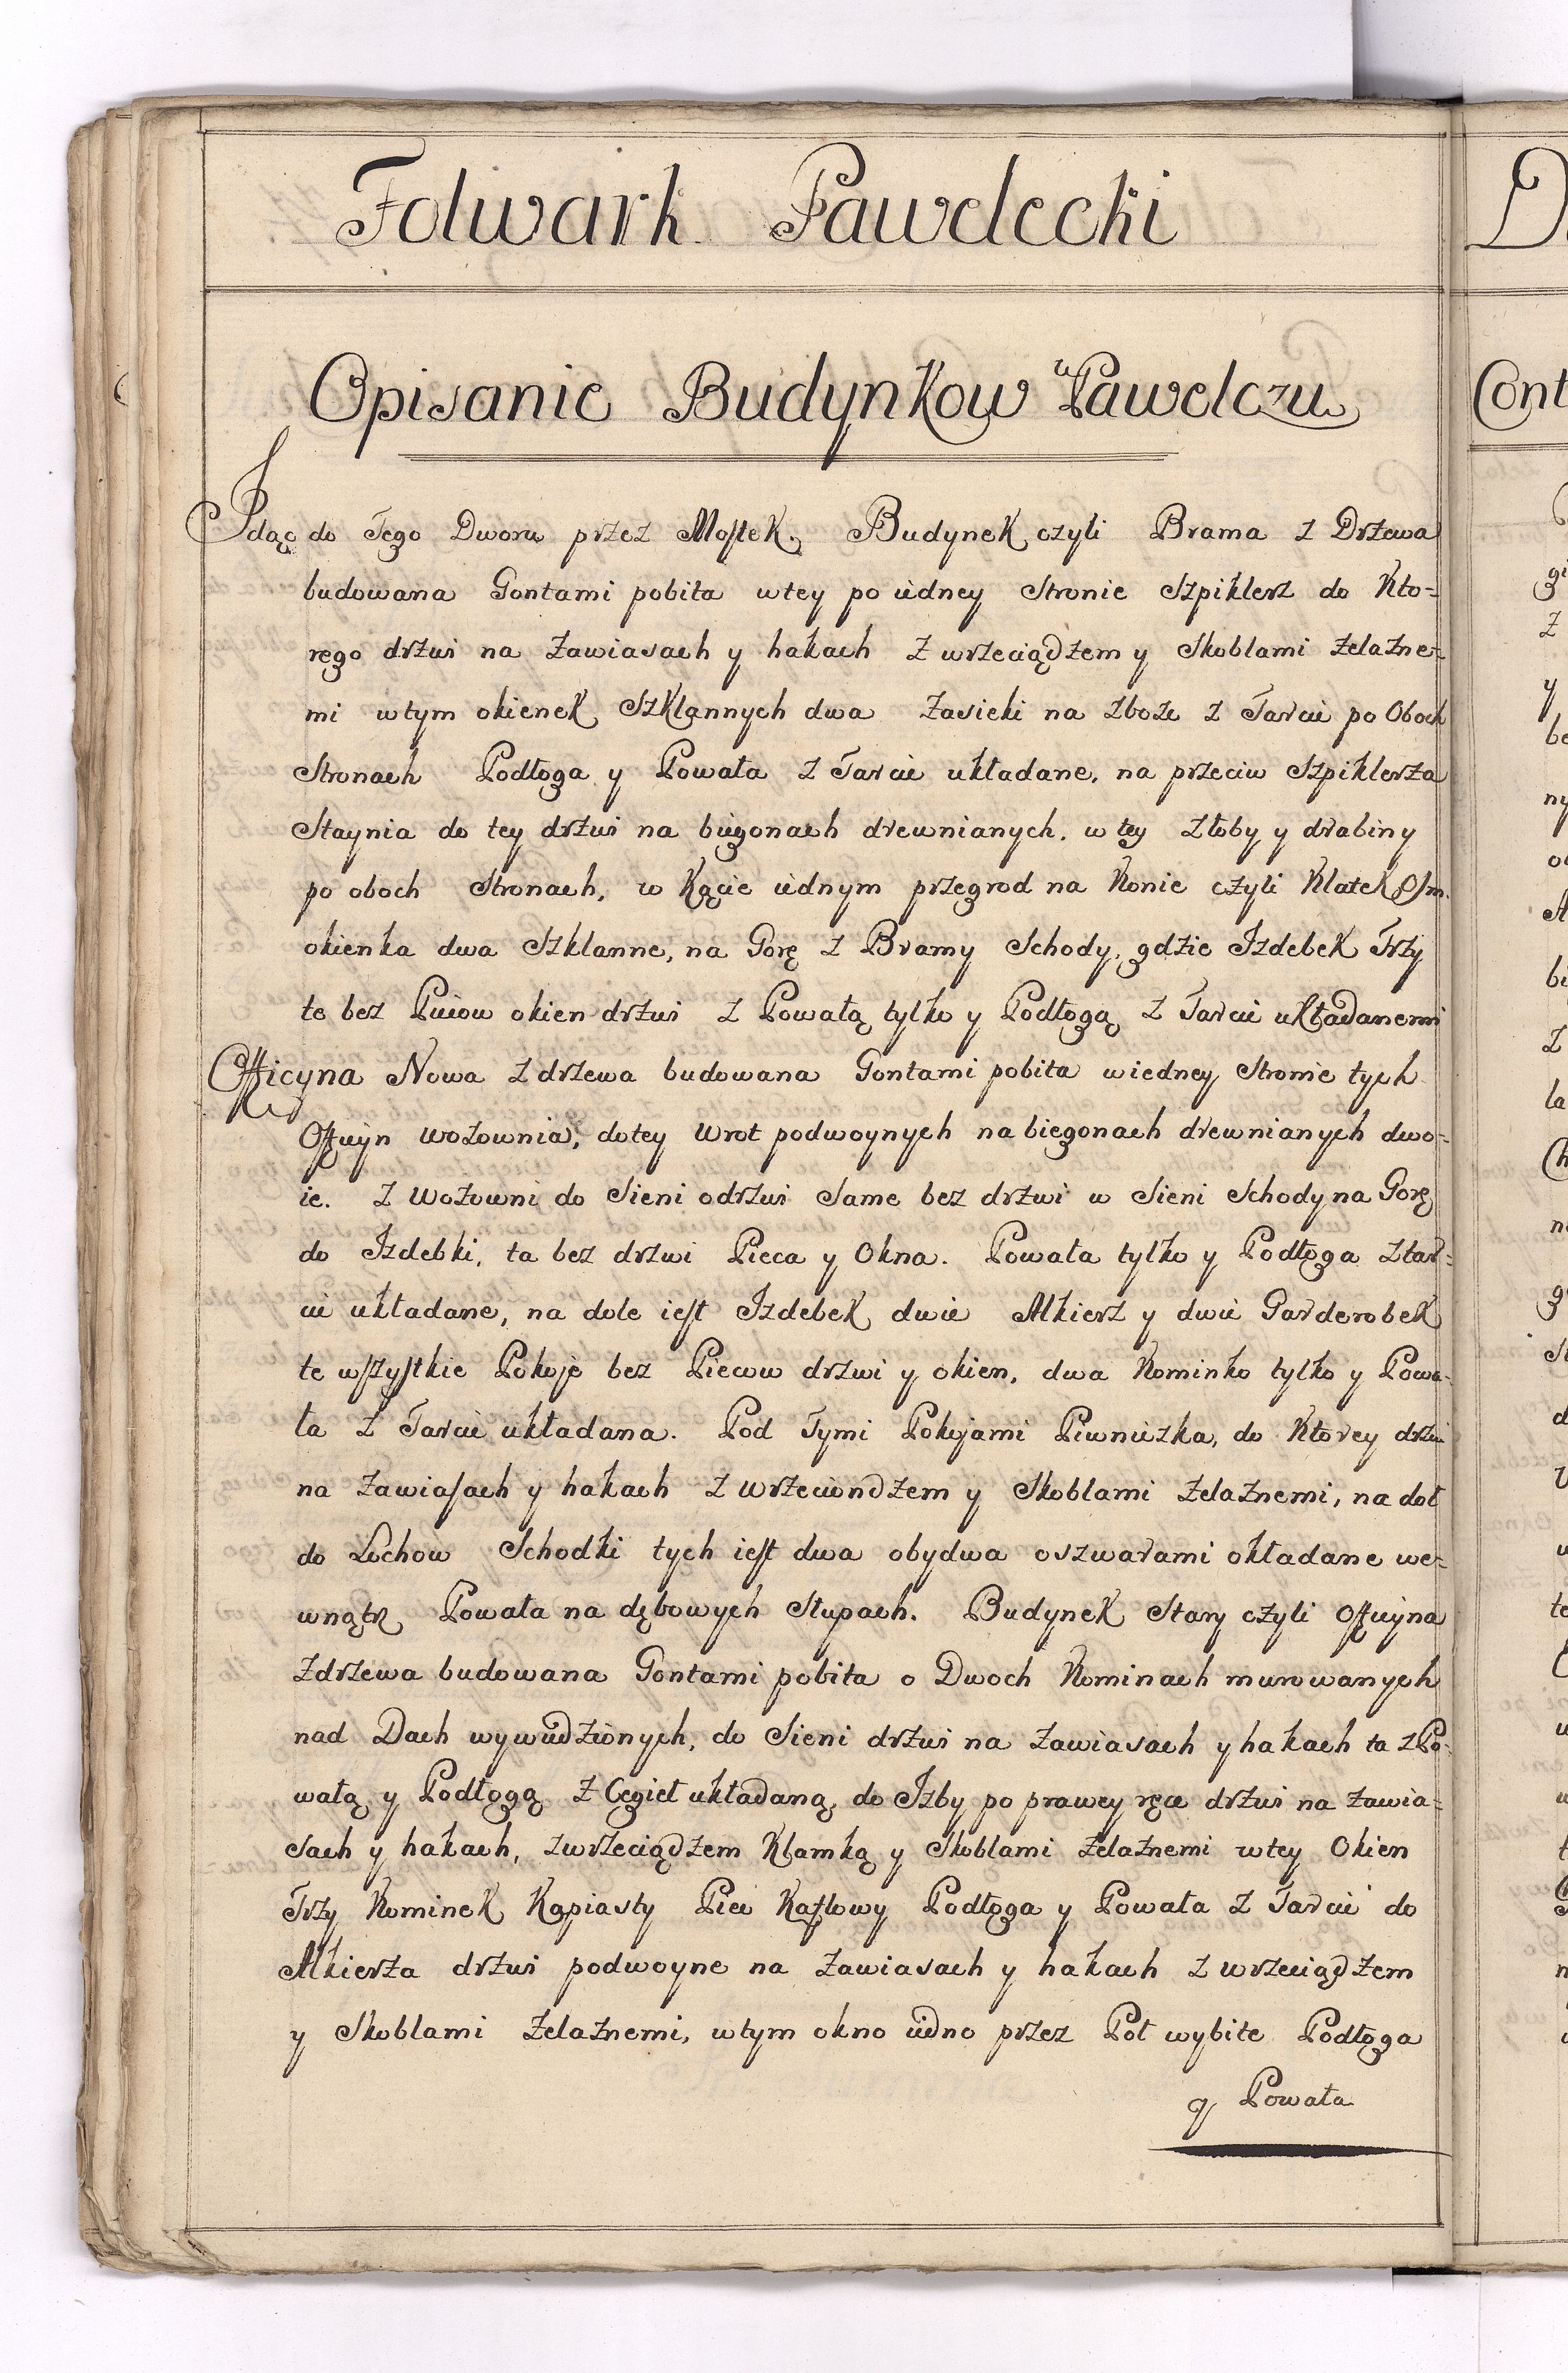 Folwark Pawelecki
Opisanie Budynkow w Pawelczu
Idąc do Tego Dworu przez Mostek. Budynek czyli Brama z Drzewa
budowana Gontami pobita wtey po iedney Stronie Szpiklerz do Kto-
rego drzwi na Zawiasach y hakach z wrzeciądzem y Skoblami Zelazne-
mi wtym okienek Szklannych dwa Zasieki na Zboze z Tarcic po Oboch
Stronach Podłoga y Powała z Tarcic układane, na przeciw Szpiklerza
Staynia do tey drzwi na biegonach drewnianych. w tey Złoby y drabiny
po oboch Stronach, w Kącie iednym przegrod na Konie czyli Klatek
okienka dwa Szklanne, na Gorę z Bramy Schody, gdzie Izdebek Trzy
te bez Piecow okien drzwi z Powałą tylko y Podłogą z Tarcic układanemi
Officyna Nowa z drzewa budowana Gontami pobita wiedney Stronie tych
Officyn wozownia, dotey Wrot podwoynych na biegonach drewnianych dwo-
ie. Z Wozowni do Sieni odrzwi Same bez drzwi w Sieni Schody na Gorę
do Izdebki, ta bez drzwi Pieca y Okna. Powała tylko y Podłoga Ztar-
cic układane, na dole iest Izdebek dwie Alkierz y dwie Garderobek
te wszystkie Pokoje bez Piecow drzwi y okien, dwa Kominko tylko y Powa-
ła z Tarcic układana. Pod Tymi Pokojami Piwniczka, do Ktorey drzwi
na Zawiasach y hakach z wrzeciondzem y Skoblami Zelaznemi, na doł
do Lochow Schodki tych iest dwa obydwa oszwarami okładane we-
wnątrz Powała na dębowych Słupach. Budynek Stary czyli Officyna
Zdrzewa budowana Gontami pobita o Dwoch Kominach murowanych
nad Dach wywiedzionych, do Sieni drzwi na Zawiasach y hakach ta z Po-
wałą y Podłogą z Cegieł układaną do Izby po prawey ręce drzwi na zawia-
sach y hakach, zwrzeciądzem Klamką y Skoblami Zelaznemi wtey Okien
Trzy Kominek Kapiasty Piec Kaflowy Podłoga y Powała z Tarcic do
Alkierza drzwi podwoyne na Zawiasach y hakach z wrzeciądzem
y Skoblami Zelaznemi, wtym okno iedno przez Poł wybite Podłoga
y Powała